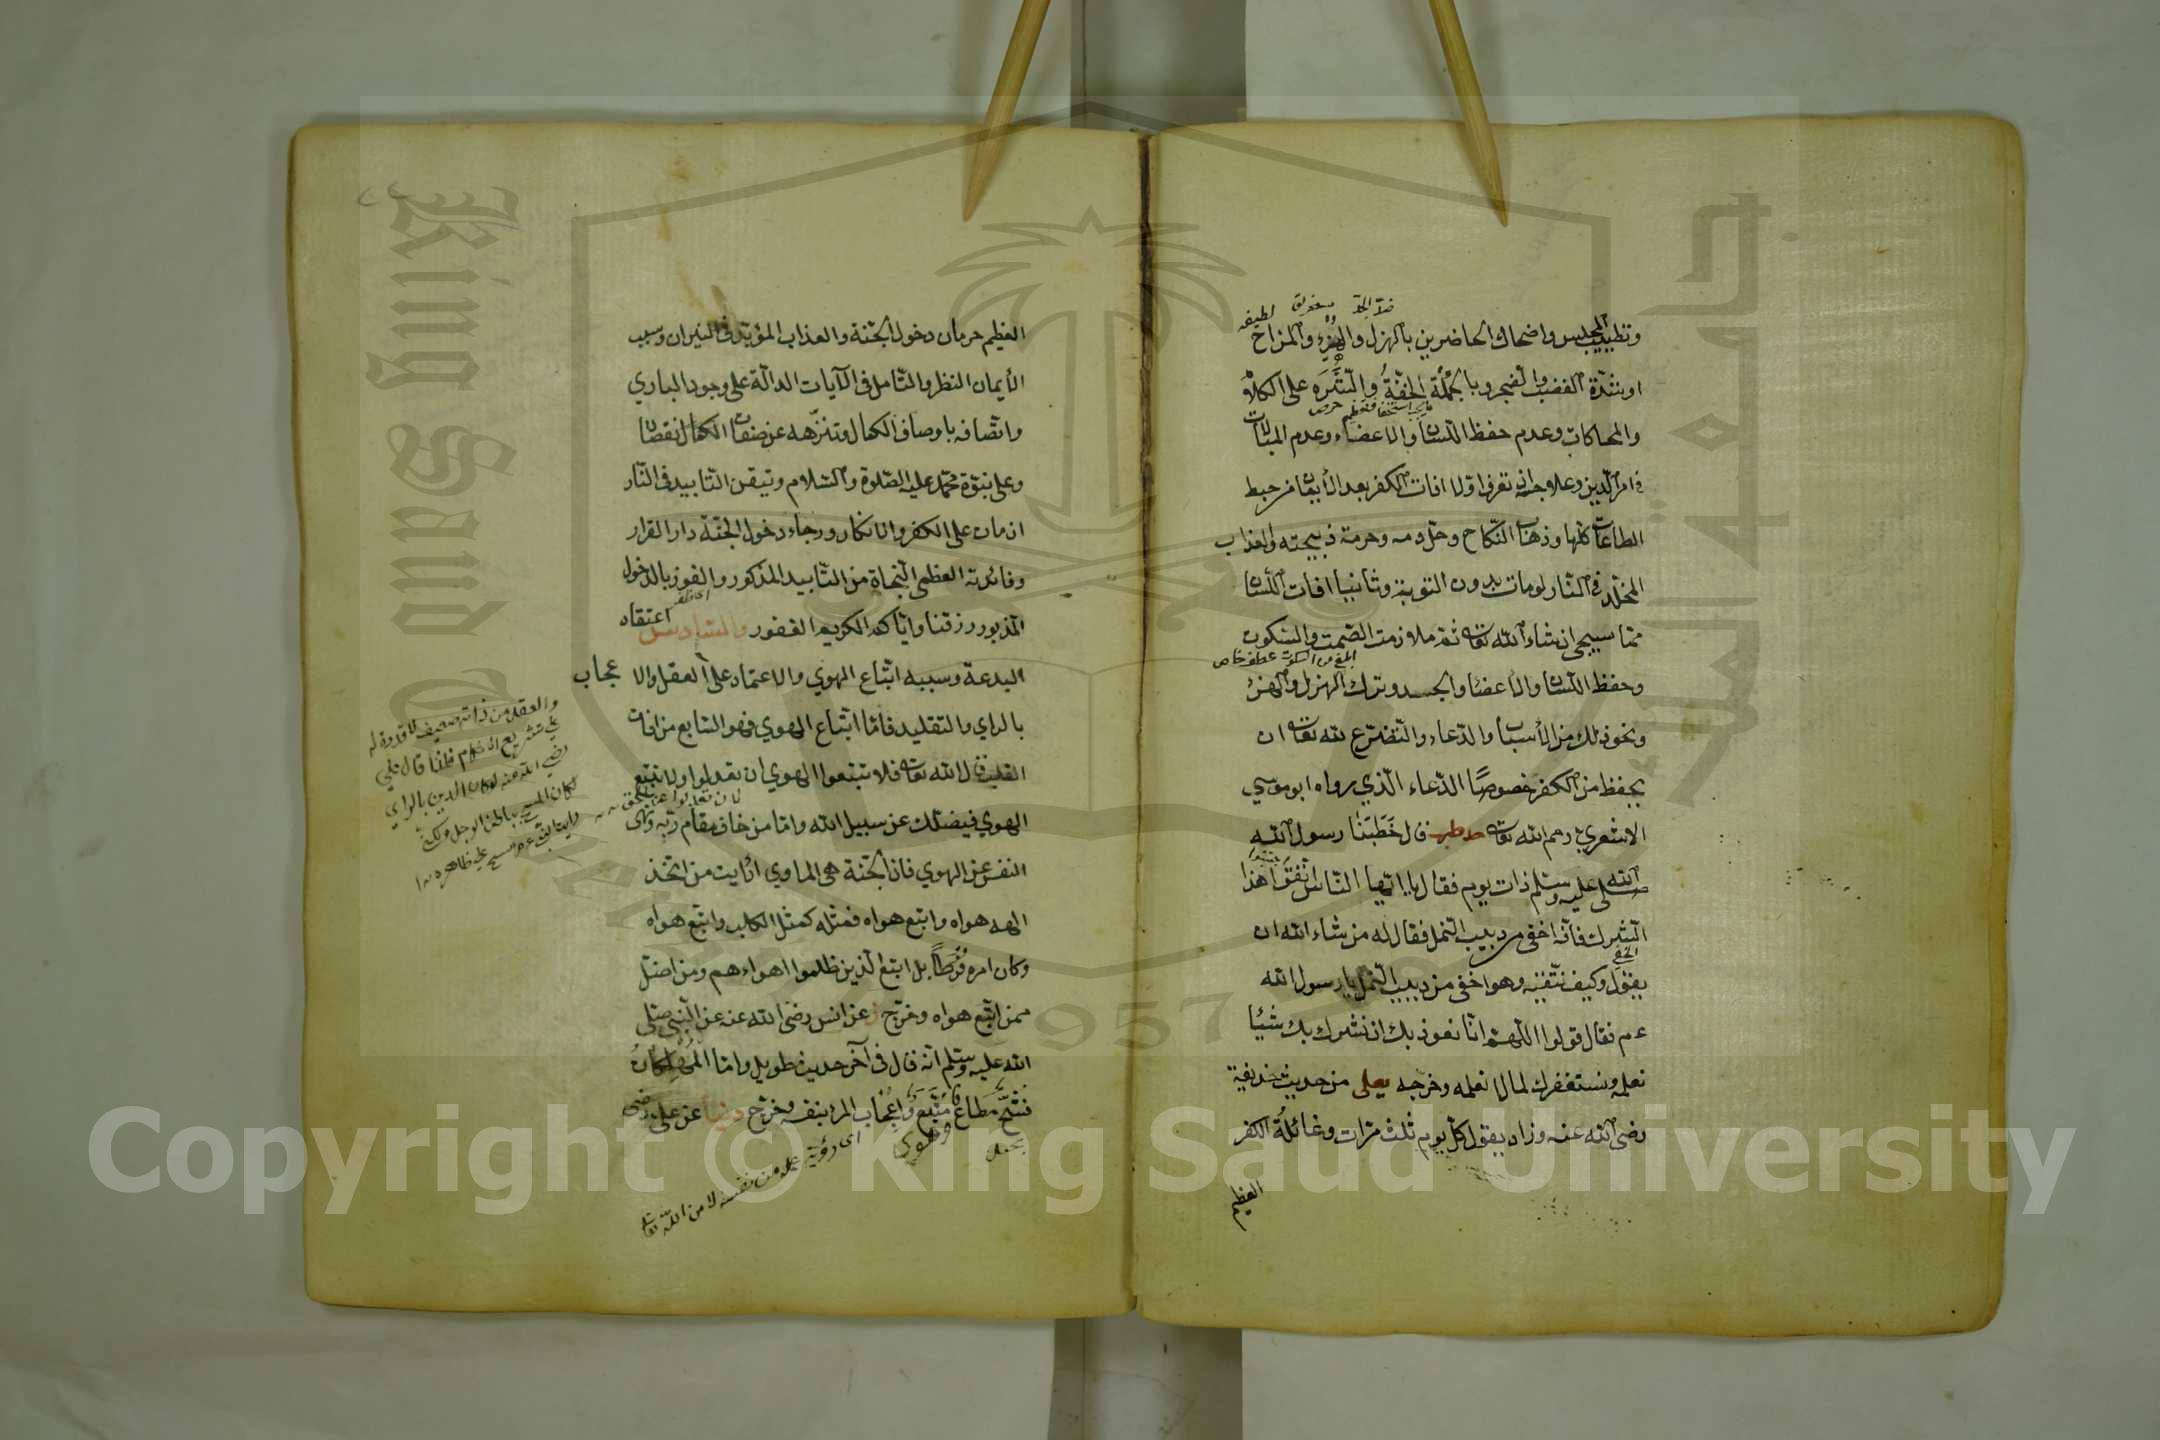 وتطييب المجلس واضحاك الحاضرين بالهزل والهزء والمزاح
او شدة الغضب والضجر وبالجملة الخفة والشره على الكلام
والمحاكات وعدم حفظ اللسان والاعضاء وعدم المبالات
في امر الدين وعلاجه ان تعرف اولا افات الكفر بعد الأيمان من حبط
الطاعات كلها وذهاب النكاح وحل دمه وحرمة ذبيحته والعذاب
المخلد في النار لو مات بدون التوبة وثانيا افات اللسان
مما سيجئ ان شاء الله تعالى ثم ملازمت الصمت والسكون
وحفظ اللسان والاعضاء والجسد وترك الهزل والهزء
ونحو ذلك من الأسباب والدعاء والتضرع لله تعالى ان
يحفظ من الكفر خصوصًا الدعاء الذي رواه ابو موسي
الاشعري رحمه الله تعالى حد طب قال خطبنا رسول الله
صلى الله عليه وسلم ذات يوم فقال يا ايها الناس اتقوا هذا
الشرك فانه اخفى من دبيب النمل فقال له من شاء الله ان
يقول وكيف نتقيه وهو اخفى من دبيب النمل يا رسول الله
عم فقال قولوا اللهم انا نعوذ بك ان نشرك بك شيئا
نعلمه ونستغفرك لما لا نعلمه وخرجه يعلى من حديث حذيفة
رضى الله عنه وزاد يقول كل يوم ثلث مرات وغائلة الكفر
العظيم
العظيم حرمان دخول الجنة والعذاب المؤبد في النيران وسبب
الأيمان النظر والتأمل في الآيات الدالة على وجود الباري
واتصافه باوصاف الكمال وتنزهه عن صفات الكمال نقصان
وعلى نبوة محمد عليه الصلوة والسلام وتيقن التابيد في النار
ان مات على الكفر والانكار ورجاء دخول الجنة دار القرار
وفائدته العظمى النجاة من التأبيد المذكور والفوز بالدخول
المذبور رزقنا واياكم الكريم الغفور والسادس اعتقاد
البدعة وسببه اتباع الهوي والاعتماد على العقل والاعجاب
بالراي والتقليد فاما اتباع الهوي فهو السابع من افات
القلب قال الله تعالى فلا تتبعوا الهوي ان تعدلوا ولا تتبع
الهوي فيضلك عن سبيل الله واما من خاف مقام ربه ونهى
النفس عن الهوي فان الجنة هي الماوي ارأيت من اتخذ
الهه هواه واتبع هواه فمثله كمثل الكلب واتبع هواه
وكان امره فرطًا بل اتبع الذين ظلموا اهواءهم ومن اضل
ممن اتبع هواه وخرج ز عن انس رضى الله عنه عن النبي صلى
الله عليه وسلم انه قال في آخر حديث طويل واما المهلكات
فشح مطاع وهوى متبع واعجاب المرء بنفسه وخرج دنيا عن على رضى
اى رؤية عمله من نفسه لا من الله تعالى
والعقل من ذاته ضعيف لا قدرة له
على تشريع الاحكام فلذا قال على
رضى الله عنه لو كان الدين بالراي
لكان المسح بباطن الرجل ولكن
رايت النبي عم مسح على ظاهره